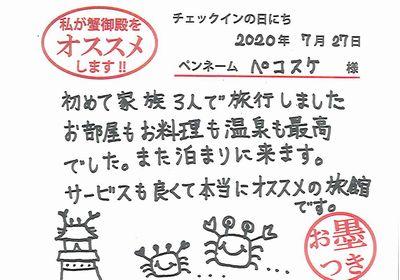 私が蟹御殿を
オススメ
します!!
チェックインの日にち
2020年 7月27日
ペンネーム ペコスケ 様
初めて家族3人で旅行しました
お部屋もお料理も温泉も最高
でした。また泊まりに来ます。
サービスも良くて本当にオススメの旅館
です。
お墨
つき